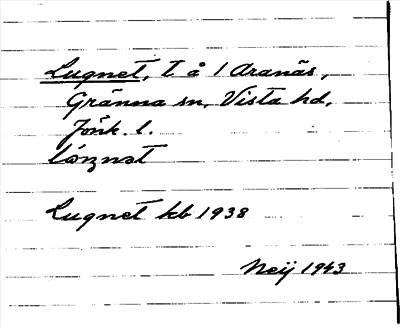 Lugnet, t å 1 Aranäs,
Gränna sn, Vista hd,
Jönk. l.
Lugnet kb 1938
Neij 1943